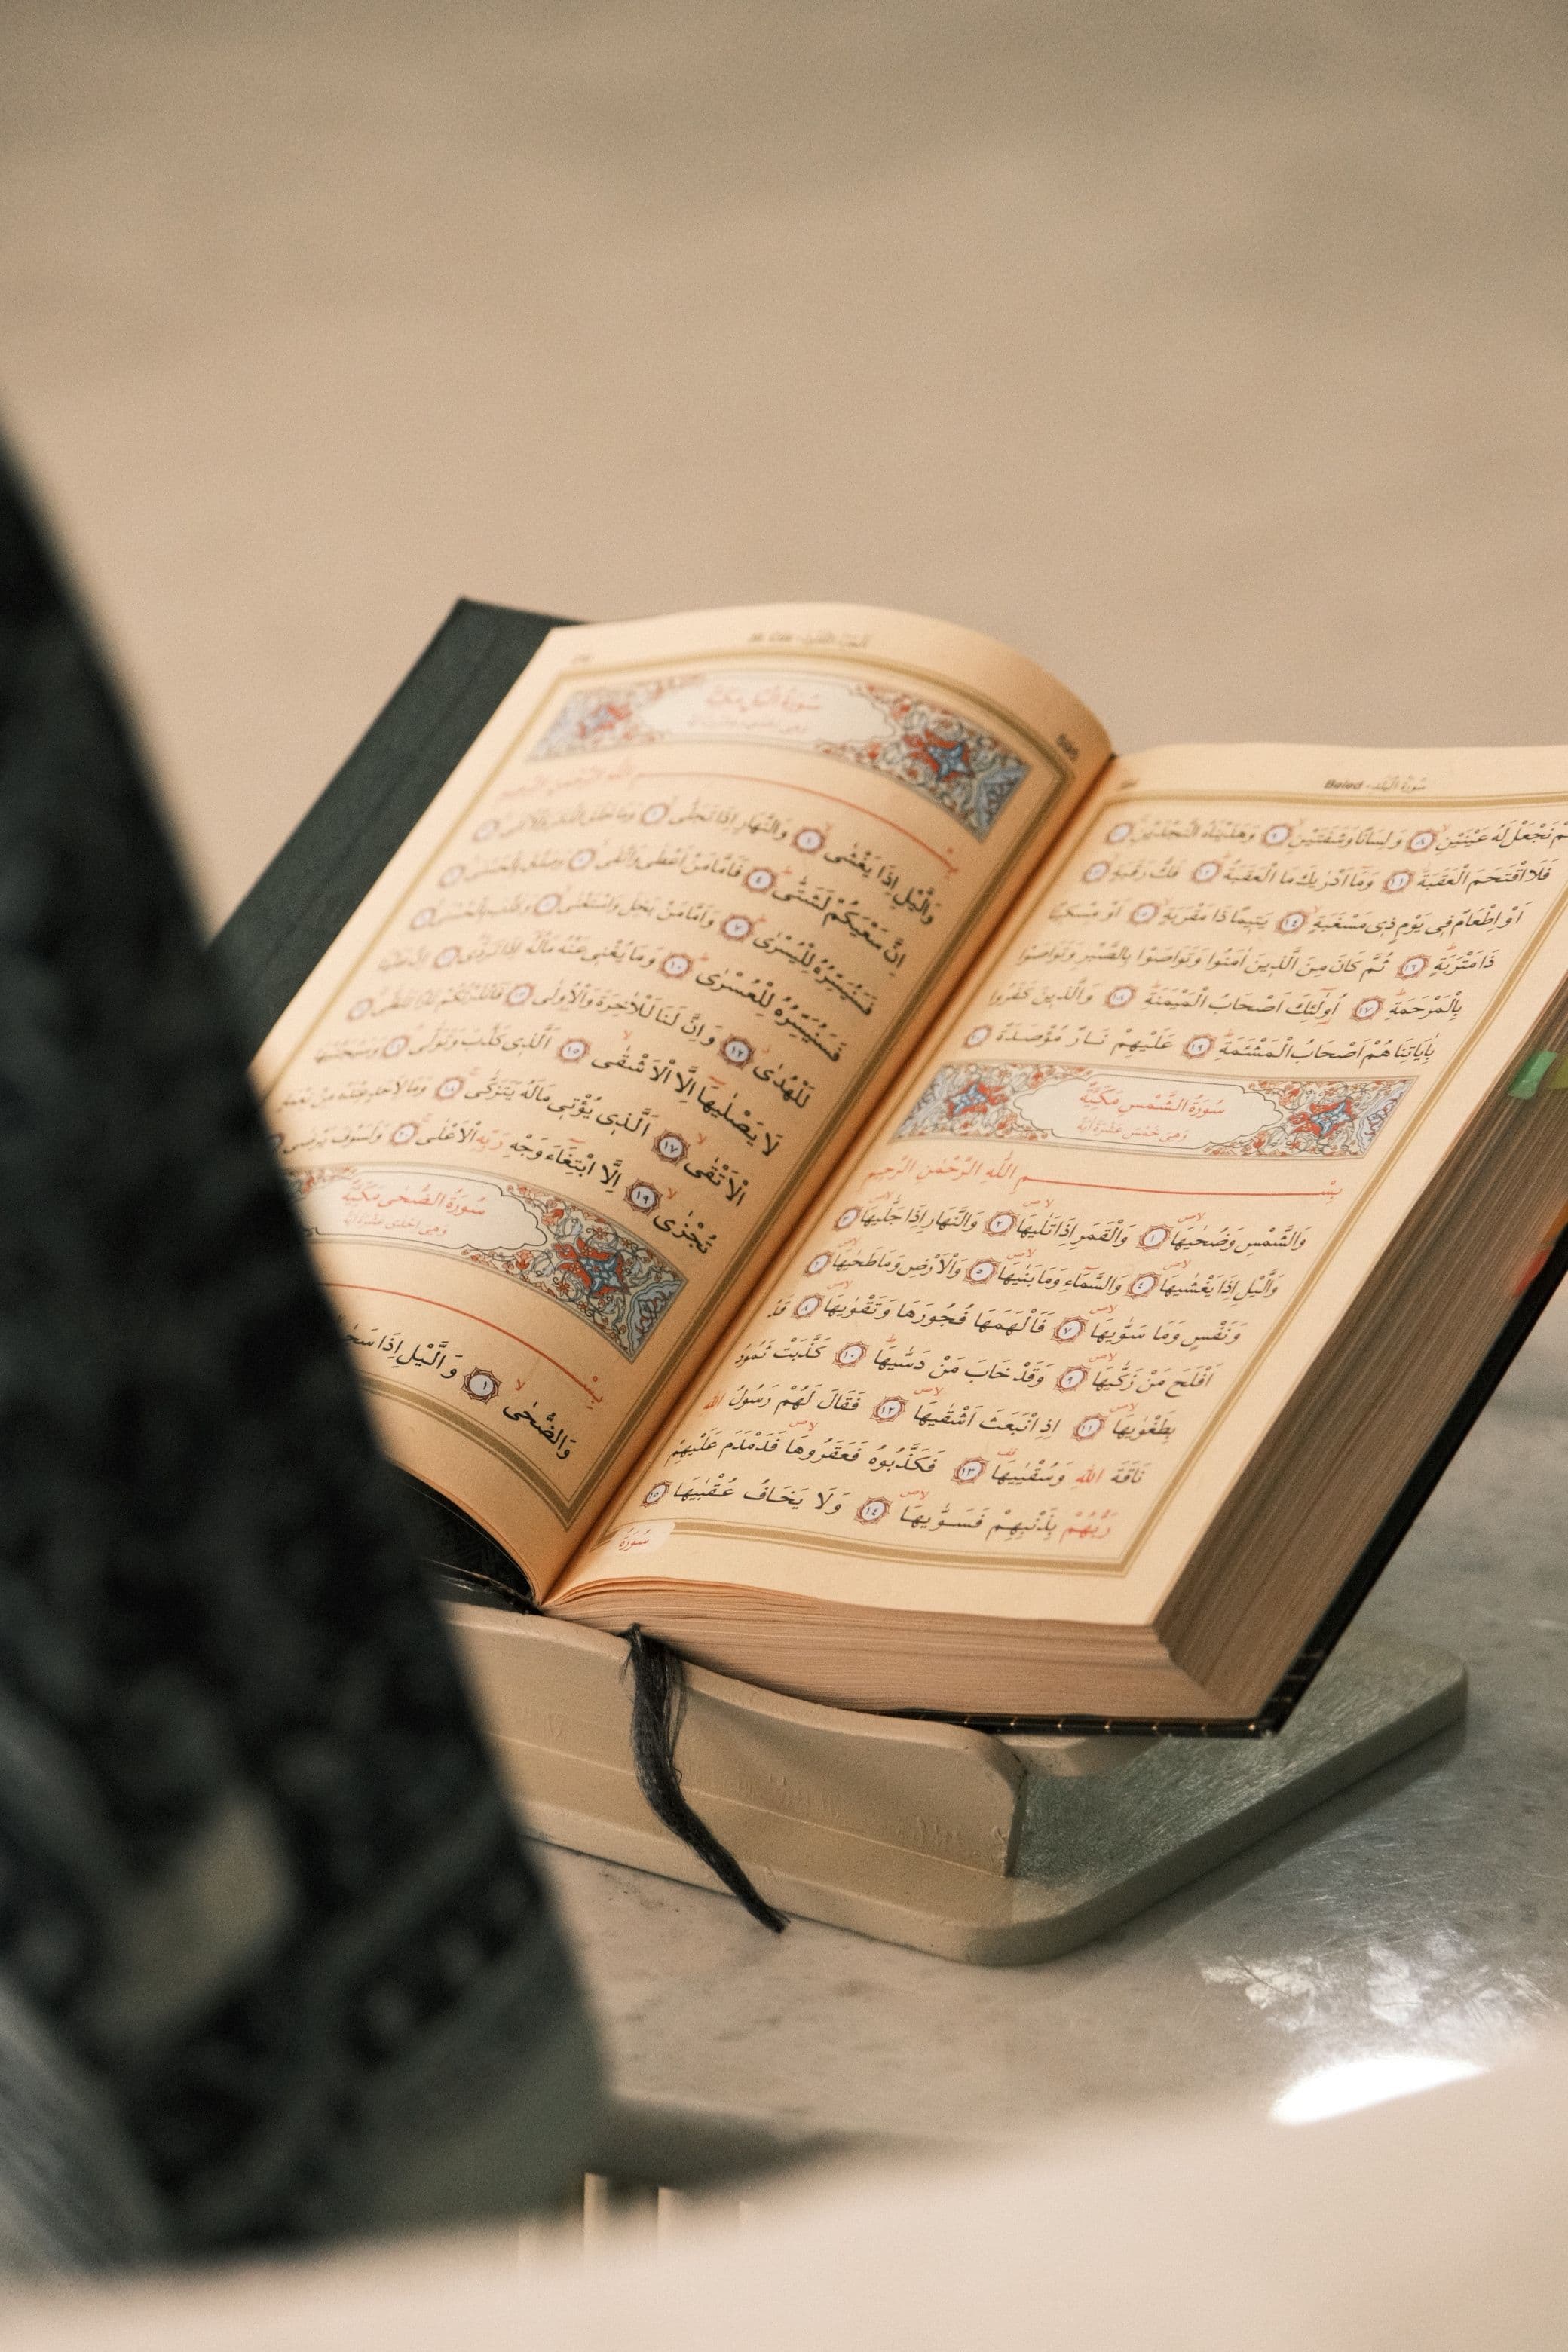 Beled - سُورَةُ الْبَلَدِ
نَجْعَلْ لَهُ عَيْنَيْنِ ﴿٨﴾ وَلِسَانًا وَشَفَتَيْنِ ﴿٩﴾ وَهَدَيْنَاهُ النَّجْدَيْنِ ﴿١٠﴾
فَلَا اقْتَحَمَ الْعَقَبَةَ ﴿١١﴾ وَمَٓا اَدْرٰيكَ مَا الْعَقَبَةُ ﴿١٢﴾ فَكُّ رَقَبَةٍ ﴿١٣﴾
اَوْ اِطْعَامٌ فِى يَوْمٍ ذِى مَسْغَبَةٍ ﴿١٤﴾ يَتِيمًا ذَا مَقْرَبَةٍ ﴿١٥﴾ اَوْ مِسْكِينًا
ذَا مَتْرَبَةٍ ﴿١٦﴾ ثُمَّ كَانَ مِنَ الَّذِينَ اٰمَنُوا وَتَوَاصَوْا بِالصَّبْرِ وَتَوَاصَوْا
بِالْمَرْحَمَةِ ﴿١٧﴾ اُولٰٓئِكَ اَصْحَابُ الْمَيْمَنَةِ ﴿١٨﴾ وَالَّذِينَ كَفَرُوا
بِاٰيَاتِنَا هُمْ اَصْحَابُ الْمَشْـَٔمَةِ ﴿١٩﴾ عَلَيْهِمْ نَارٌ مُؤْصَدَةٌ ﴿٢٠﴾
سُورَةُ الشَّمْسِ مَكِّيَّةٌ
وَهِىَ خَمْسَ عَشْرَةَ اٰيَةً
بِسْمِ اللّٰهِ الرَّحْمٰنِ الرَّحِيمِ
وَالشَّمْسِ وَضُحٰيهَا ﴿١﴾ وَالْقَمَرِ اِذَا تَلٰيهَا ﴿٢﴾ وَالنَّهَارِ اِذَا جَلّٰيهَا ﴿٣﴾
وَالَّيْلِ اِذَا يَغْشٰيهَا ﴿٤﴾ وَالسَّمَٓاءِ وَمَا بَنٰيهَا ﴿٥﴾ وَالْاَرْضِ وَمَا طَحٰيهَا ﴿٦﴾
وَنَفْسٍ وَمَا سَوّٰيهَا ﴿٧﴾ فَاَلْهَمَهَا فُجُورَهَا وَتَقْوٰيهَا ﴿٨﴾ قَدْ
اَفْلَحَ مَنْ زَكّٰيهَا ﴿٩﴾ وَقَدْ خَابَ مَنْ دَسّٰيهَا ﴿١٠﴾ كَذَّبَتْ ثَمُودُ
بِطَغْوٰيهَا ﴿١١﴾ اِذِ انْبَعَثَ اَشْقٰيهَا ﴿١٢﴾ فَقَالَ لَهُمْ رَسُولُ اللّٰهِ
نَاقَةَ اللّٰهِ وَسُقْيٰيهَا ﴿١٣﴾ فَكَذَّبُوهُ فَعَقَرُوهَا فَدَمْدَمَ عَلَيْهِمْ
رَبُّهُمْ بِذَنْبِهِمْ فَسَوّٰيهَا ﴿١٤﴾ وَلَا يَخَافُ عُقْبٰيهَا ﴿١٥﴾
سُورَةُ
سُورَةُ الَّيْلِ مَكِّيَّةٌ
وَالَّيْلِ اِذَا يَغْشٰى ﴿١﴾ وَالنَّهَارِ اِذَا تَجَلّٰى ﴿٢﴾ وَمَا خَلَقَ الذَّكَرَ وَالْاُنْثٰى ﴿٣﴾
اِنَّ سَعْيَكُمْ لَشَتّٰى ﴿٤﴾ فَاَمَّا مَنْ اَعْطٰى وَاتَّقٰى ﴿٥﴾ وَصَدَّقَ بِالْحُسْنٰى ﴿٦﴾
فَسَنُيَسِّرُهُ لِلْيُسْرٰى ﴿٧﴾ وَاَمَّا مَنْ بَخِلَ وَاسْتَغْنٰى ﴿٨﴾ وَكَذَّبَ بِالْحُسْنٰى ﴿٩﴾
فَسَنُيَسِّرُهُ لِلْعُسْرٰى ﴿١٠﴾ وَمَا يُغْنِى عَنْهُ مَالُهُٓ اِذَا تَرَدّٰى ﴿١١﴾ اِنَّ عَلَيْنَا
لَلْهُدٰى ﴿١٢﴾ وَاِنَّ لَنَا لَلْاٰخِرَةَ وَالْاُولٰى ﴿١٣﴾ فَاَنْذَرْتُكُمْ نَارًا تَلَظّٰى ﴿١٤﴾
لَا يَصْلٰيهَٓا اِلَّا الْاَشْقٰى ﴿١٥﴾ اَلَّذِى كَذَّبَ وَتَوَلّٰى ﴿١٦﴾ وَسَيُجَنَّبُهَا
الْاَتْقٰى ﴿١٧﴾ اَلَّذِى يُؤْتِى مَالَهُ يَتَزَكّٰى ﴿١٨﴾ وَمَا لِاَحَدٍ عِنْدَهُ مِنْ نِعْمَةٍ
تُجْزٰى ﴿١٩﴾ اِلَّا ابْتِغَٓاءَ وَجْهِ رَبِّهِ الْاَعْلٰى ﴿٢٠﴾ وَلَسَوْفَ يَرْضٰى
سُورَةُ الضُّحٰى مَكِّيَّةٌ
وَهِىَ اِحْدٰى عَشْرَةَ اٰيَةً
بِسْ
وَالضُّحٰى ﴿١﴾ وَالَّيْلِ اِذَا